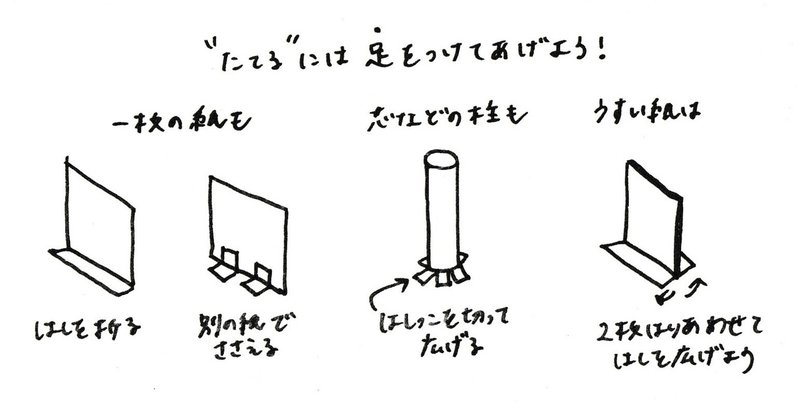 “たてる”には足をつけてあげよう!
一枚の紙も
芯などの柱も
うすい紙は
はしを折る
別の紙で
ささえる
はしっこを切って
広げる
2枚はりあわせて
はしを広げよう